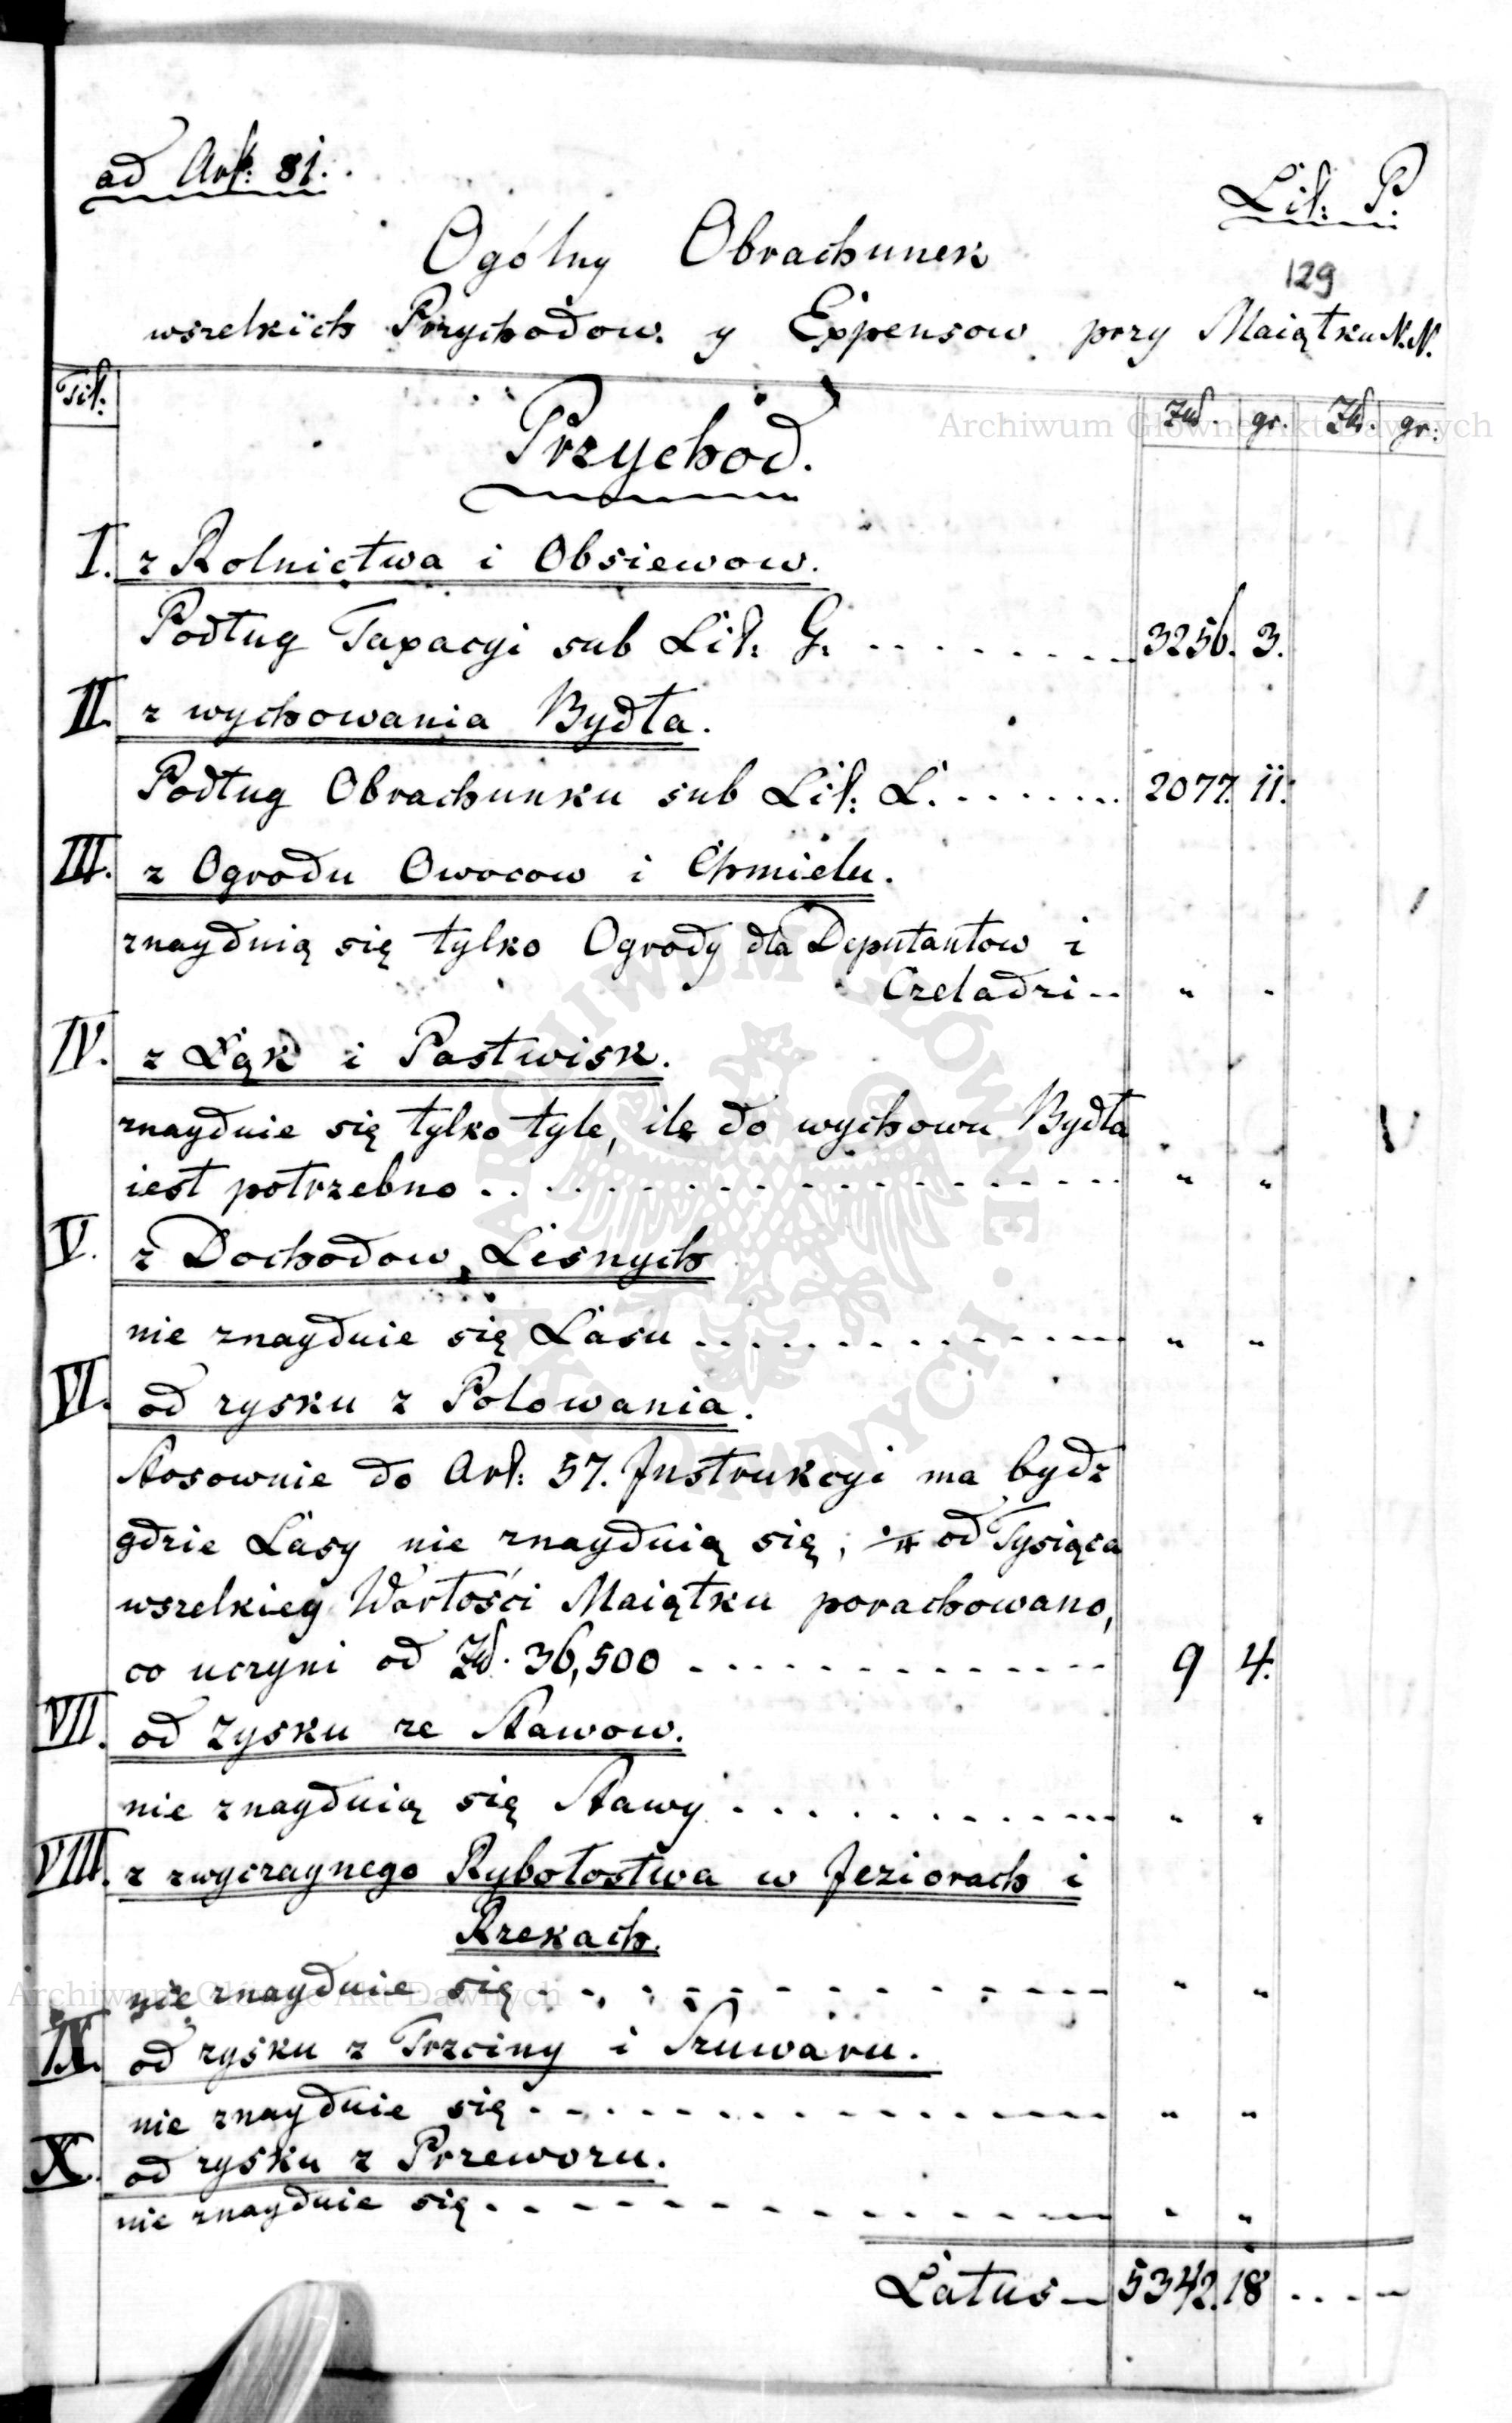 ad Art: 81.
Lit: P.
129
Ogólny Obrachunek
wszelkich Przychodow y Expensow przy Maiątku N.N.
Tit:
Przychod.
Zł. gr. Zł. gr:
I. z Rolnictwa i Obsiewow.
Podług Taxacyi sub Lit: G. 3256. 3.
II. z wychowania Bydła.
Podług Obrachunku sub Lit: L. 2077. 11.
III. z Ogrodu Owocow i Chmielu.
znayduią się tylko Ogrody dla Deputantow i
Czeladzi " "
IV. z Łąk i Pastwisk.
znayduie się tylko tyle, ile do wychowu Bydła
iest potrzebno " "
V. z Dochodow Lesnych
nie znayduie się Lasu " "
VI. od zysku z Polowania.
Stosownie do Art: 57. Instrukcyi ma bydz
gdzie Lasy nie znayduią się, od Tysiąca
wszelkiey Wartości Maiątku porachowano,
co uczyni od Zł. 36,500 9 4.
VII. od zysku ze Stawow.
nie znayduią się Stawy " "
VIII. z zwyczaynego Rybołostwa w Jeziorach i
Rzekach.
nie znayduie się " "
IX. od zysku z Trzciny i Szuwaru.
nie znayduie się " "
X. od zysku z Przewozu.
nie znayduie się " "
Latus 5342. 18
Archiwum Główne Akt Dawnych
ARCHIWUM GŁÓWNE AKT DAWNYCH
Archiwum Główne Akt Dawnych